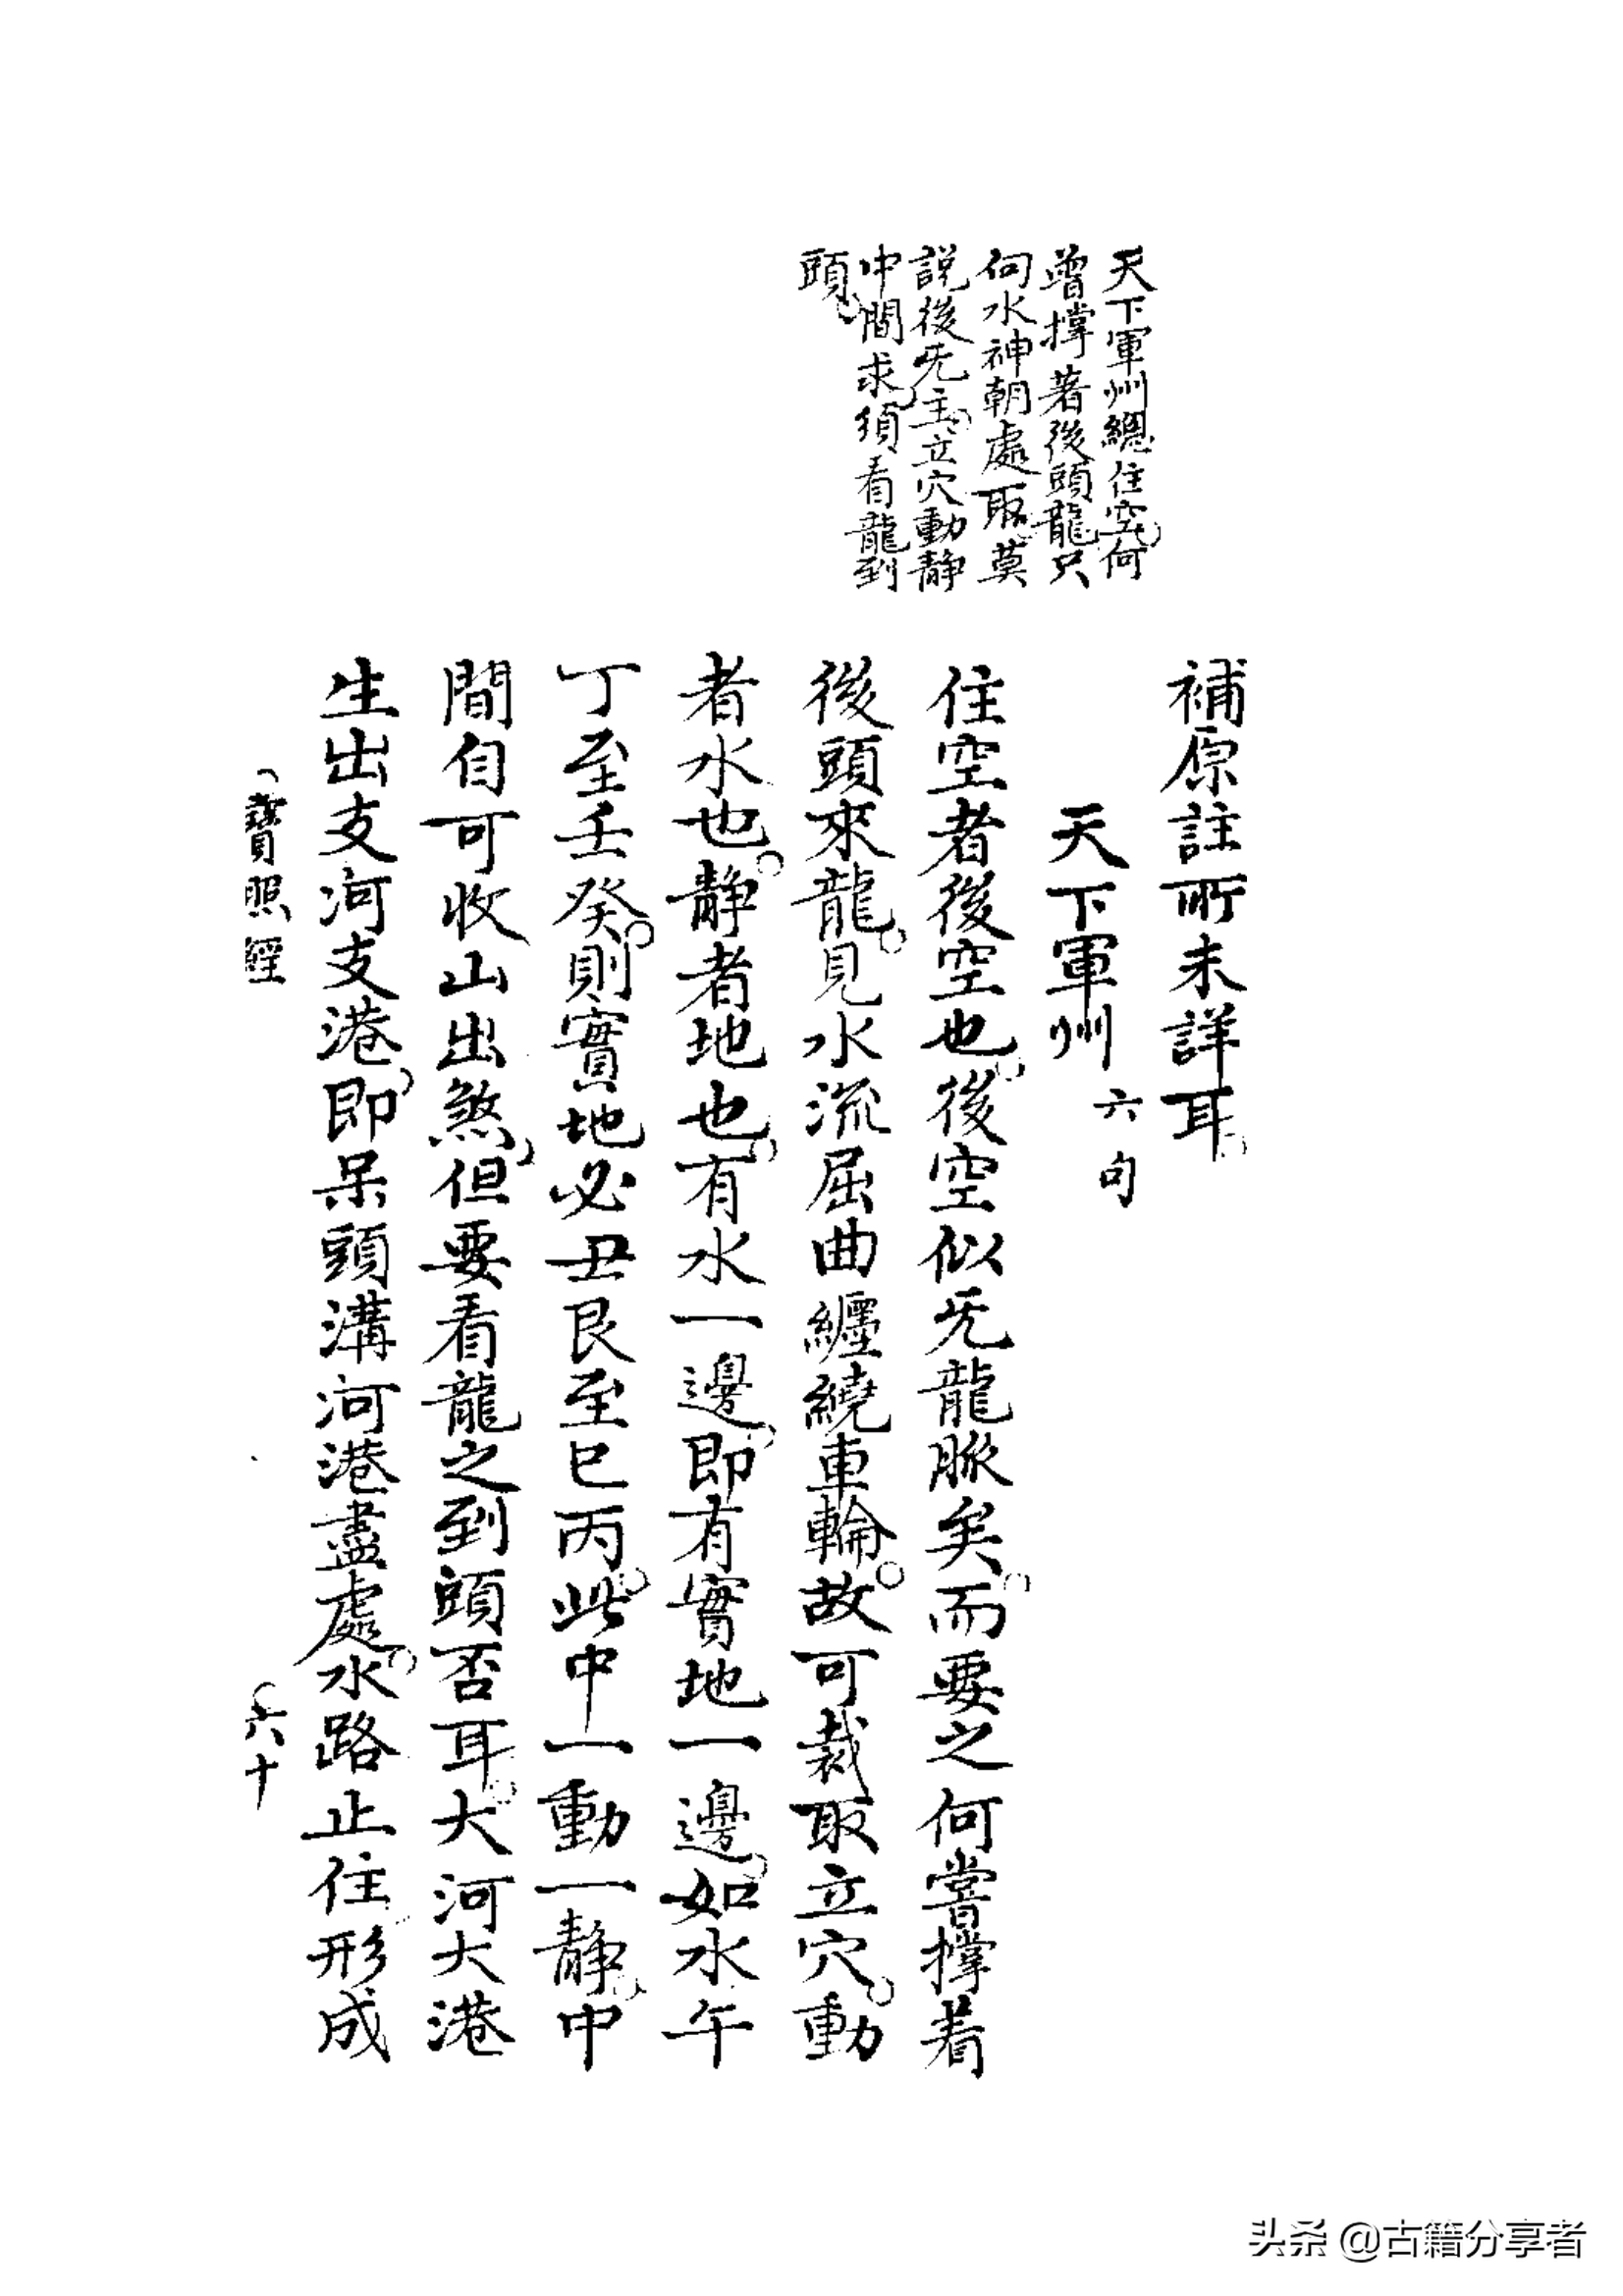 天下軍州總住空何
曾撐著後頭龍只
向水神朝處取莫
說後旡主立穴動静
中間求須看龍到
頭
補原註所未詳耳
天下軍州六句
住空者後空也後空似旡龍脈矣而要之何嘗撐着
後頭來龍見水流屈曲纏繞車輪故可裁取立穴動
者水也静者地也有水一邊即有實地一邊如水午
丁至壬癸則實地必丑艮至巳丙此中一動一静中
間自可收山出煞但要看龍之到頭否耳大河大港
生出支河支港即呆頭溝河港盡處水路止住形成
寶照經
六十
头条 @古籍分享者